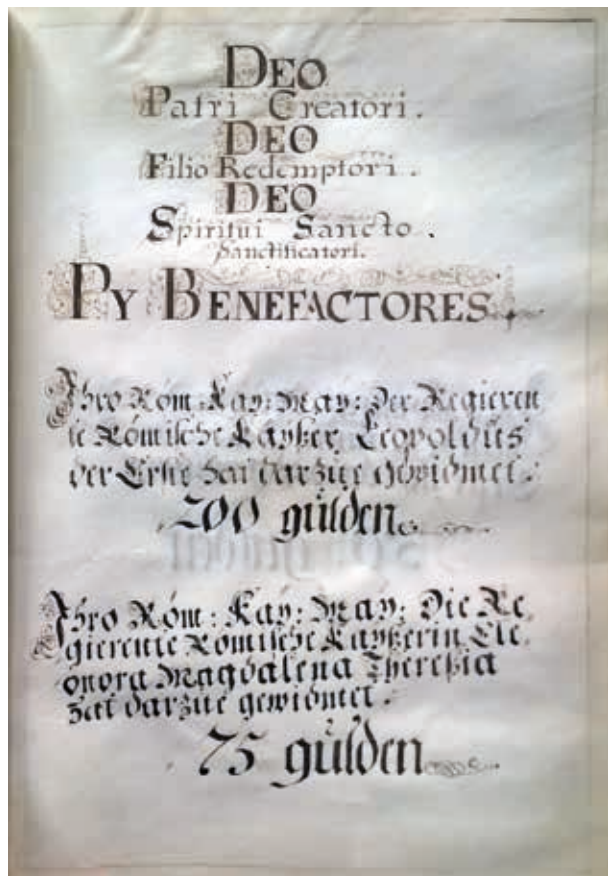 DEO
Patri Creatori.
DEO
Filio Redemptori.
DEO
Spiritui Sancto.
Sanctificatori.
PY BENEFACTORES.
Ihro Röm: Kay: May: Der Regieren
te Römische Kayßer Leopoldus
der Erste hat darzue gewidmet.
200 gulden
Ihro Röm: Kay: May: Die Re,
gierente Römische Kayßerin Ele,
onora Magdalena Thereßia
hat darzue gewidmet.
75 gulden